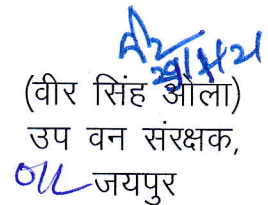 (वीर सिंह ओला)
उप वन संरक्षक,
जयपुर